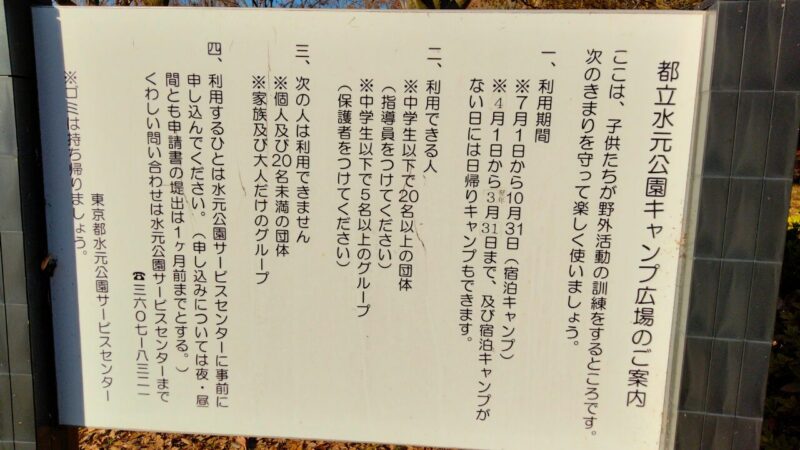 都立水元公園キャンプ広場のご案内
ここは、子供たちが野外活動の訓練をするところです。
次のきまりを守って楽しく使いましょう。
一、利用期間
※７月１日から10月31日（宿泊キャンプ）
※４月１日から翌年３月31日まで、及び宿泊キャンプが
ない日には日帰りキャンプもできます。
二、利用できる人
※中学生以下で20名以上の団体
（指導員をつけてください）
※中学生以下で５名以上のグループ
（保護者をつけてください）
三、次の人は利用できません
※個人及び20名未満の団体
※家族及び大人だけのグループ
四、利用するひとは水元公園サービスセンターに事前に
申し込んでください。（申し込みについては夜・昼
間とも申請書の堤出は１ヶ月前までとする。）
くわしい問い合わせは水元公園サービスセンターまで
☎三六〇七ー八三二一
東京都水元公園サービスセンター
※ゴミは持ち帰りましょう。